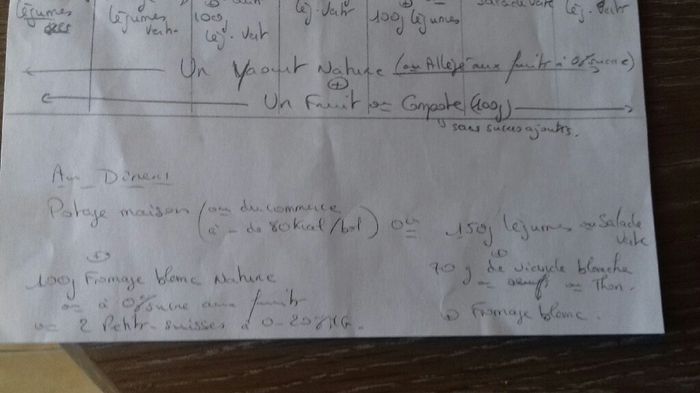 légumes légumes vert. 100g lég. vert lég. vert 100g légumes salade verte lég. vert
Un Yaourt Nature (ou Allégé aux fruits à 0% sucre)
+
Un Fruit ou Compote (100g)
sans sucres ajoutés.
Au Diner
Potage maison (ou du commerce
à - de 80kcal/bol) ou
+
100g Fromage blanc Nature
ou à 0% sucre aux fruits
ou 2 Petits-suisses à 0-20% MG.
150g légumes ou Salade verte
+
70g de viande blanche
ou oeufs ou Thon.
+ Fromage blanc.